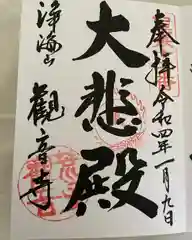 奉拝
令和四年一月九日
大悲殿
浄海山
観音寺